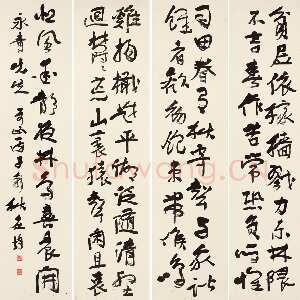 貧居依稼穡戮力東林隈
不言春作苦常恐負所懷
司田眷有秋寄聲與我諧
飢者歡初飽束帶候鳴
雞揚楫越平湖汎隨清壑
迴鬱鬱荒山裏猿聲閑且哀
悲風愛靜夜林鳥喜晨開